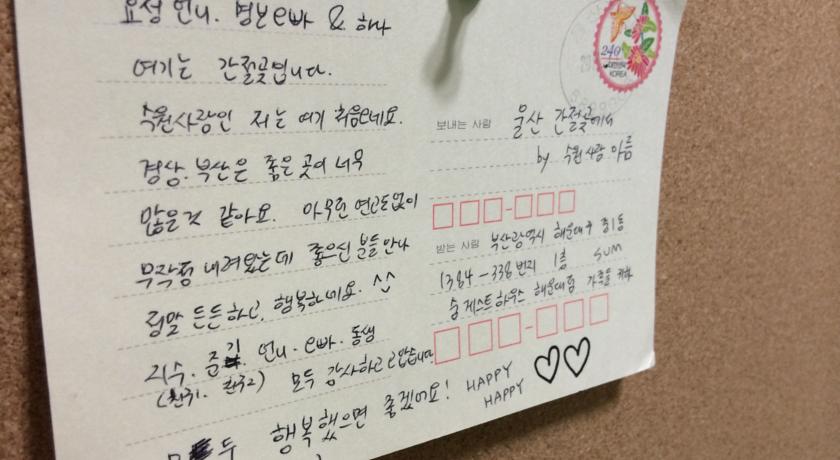 요정 언니. 명보오빠 & 하나
여기는 간절곶입니다.
수원사람인 저는 여기 처음이네요.
경상.부산은 좋은 곳이 너무
많은것 같아요. 아무런 연고도없이
무작정 내려왔는데 좋으신 분들 만나
정말 든든하고, 행복하네요. ^^
지수. 준. 언니. 오빠. 동생
모두 감사하고
모두 행복했으면 좋겠어요! HAPPY
HAPPY
240
대한민국
KOREA
보내는 사람 울산 간절곶에서
by 수원사람 아름
받는 사람 부산광역시 해운대구 중1동
1384-338번지 1층 SUM
숨 게스트하우스 해운대점 가족을 위해